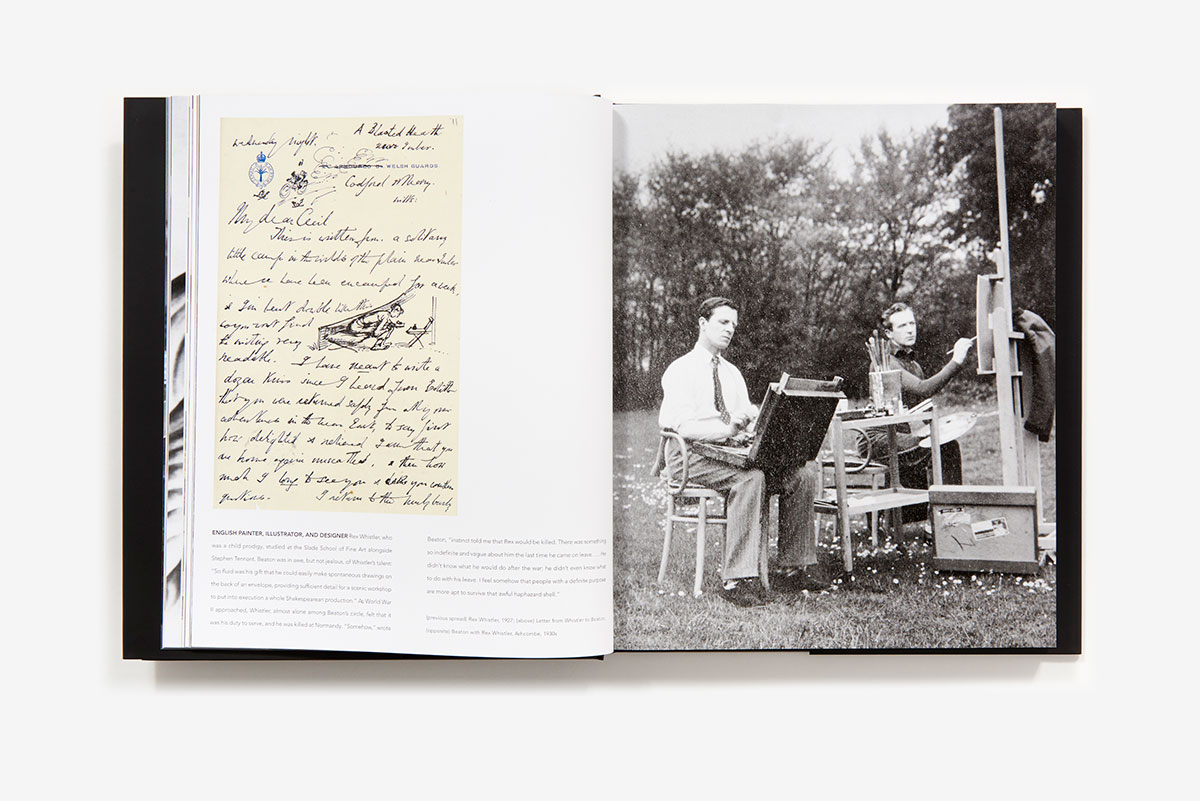 11
Wednesday night.
A Blasted Heath
near Imber.
WELSH GUARDS
Codford St Mary.
Wilts:
My dear Cecil
This is written from a solitary
little camp in the wilds of the plain near Imber
where we have been encamped for a week,
& I'm bent double
so you must find
the writing very
readable. I have meant to write a
dozen times since I heard from Edith
that you were returned safely from all your
adventures in the near East, to say first
how delighted & relieved I am that you
are home again unscathed, & then how
much I long to see you &
questions. I return to the
ENGLISH PAINTER, ILLUSTRATOR, AND DESIGNER Rex Whistler, who
was a child prodigy, studied at the Slade School of Fine Art alongside
Stephen Tennant. Beaton was in awe, but not jealous, of Whistler's talent:
"So fluid was his gift that he could easily make spontaneous drawings on
the back of an envelope, providing sufficient detail for a scenic workshop
to put into execution a whole Shakespearean production." As World War
II approached, Whistler, almost alone among Beaton's circle, felt that it
was his duty to serve, and he was killed at Normandy. "Somehow," wrote
Beaton, "instinct told me that Rex would be killed. There was something
so indefinite and vague about him the last time he came on leave. . . . He
didn't know what he would do after the war; he didn't even know what
to do with his leave. I feel somehow that people with a definite purpose
are more apt to survive that awful haphazard shell."
(previous spread) Rex Whistler, 1927; (above) Letter from Whistler to Beaton;
(opposite) Beaton with Rex Whistler, Ashcombe, 1930s